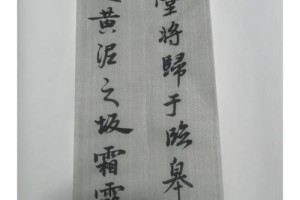 堂將歸于臨皋
黃泥之坂霜露